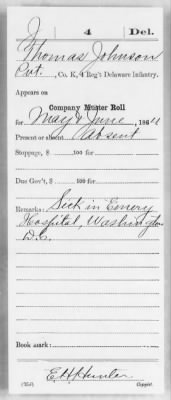 J 4 Del.
Thomas Johnson
Pvt., Co. K, 4 Reg't Delaware Infantry.
Appears on
Company Muster Roll
for May & June, 1864
Present or absent Absent
Stoppage, $ 100 for
Due Gov't, $ 100 for
Remarks: Sick in Emery
Hospital, Washington
D.C.
Book mark:
E H Hunter
(354) Copyist.